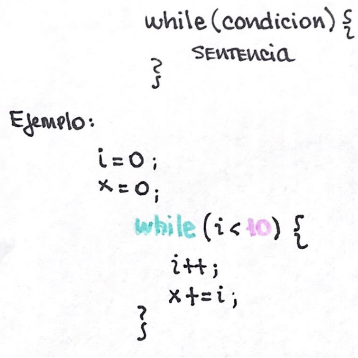 while (condicion) {
SENTENCIA
}
Ejemplo:
i = 0 ;
x = 0;
while (i < 10) {
i++;
x += i;
}